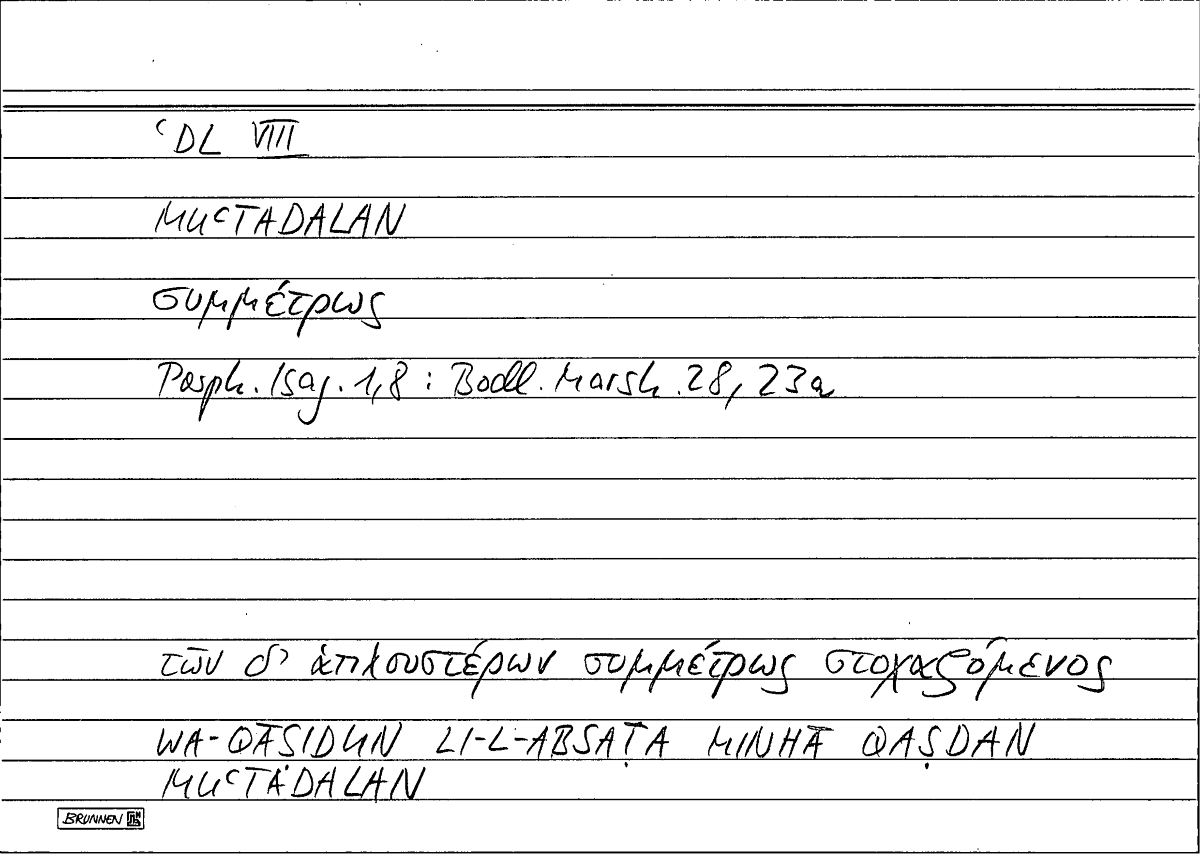 ʿDL VIII
MUʿTADALAN
συμμέτρως
Porph. Isag. 1,8 : Bodl. Marsh. 28, 23a
τῶν δ' ἁπλουστέρων συμμέτρως στοχαζόμενος
WA-QĀṢIDUN LI-L-ABSAṬA MINHĀ QAṢDAN
MUʿTADALAN
BRUNNEN